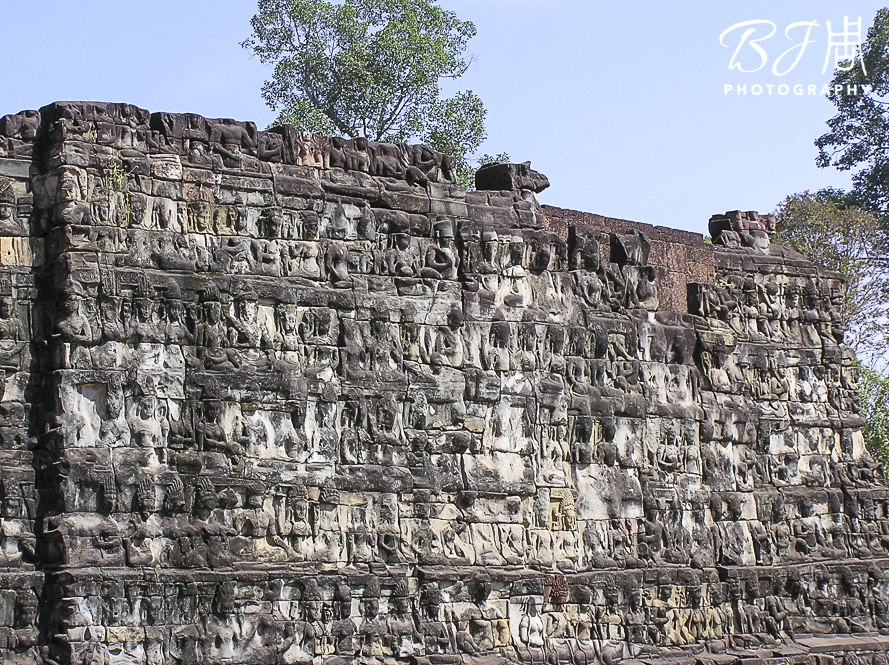 BJ周
PHOTOGRAPHY